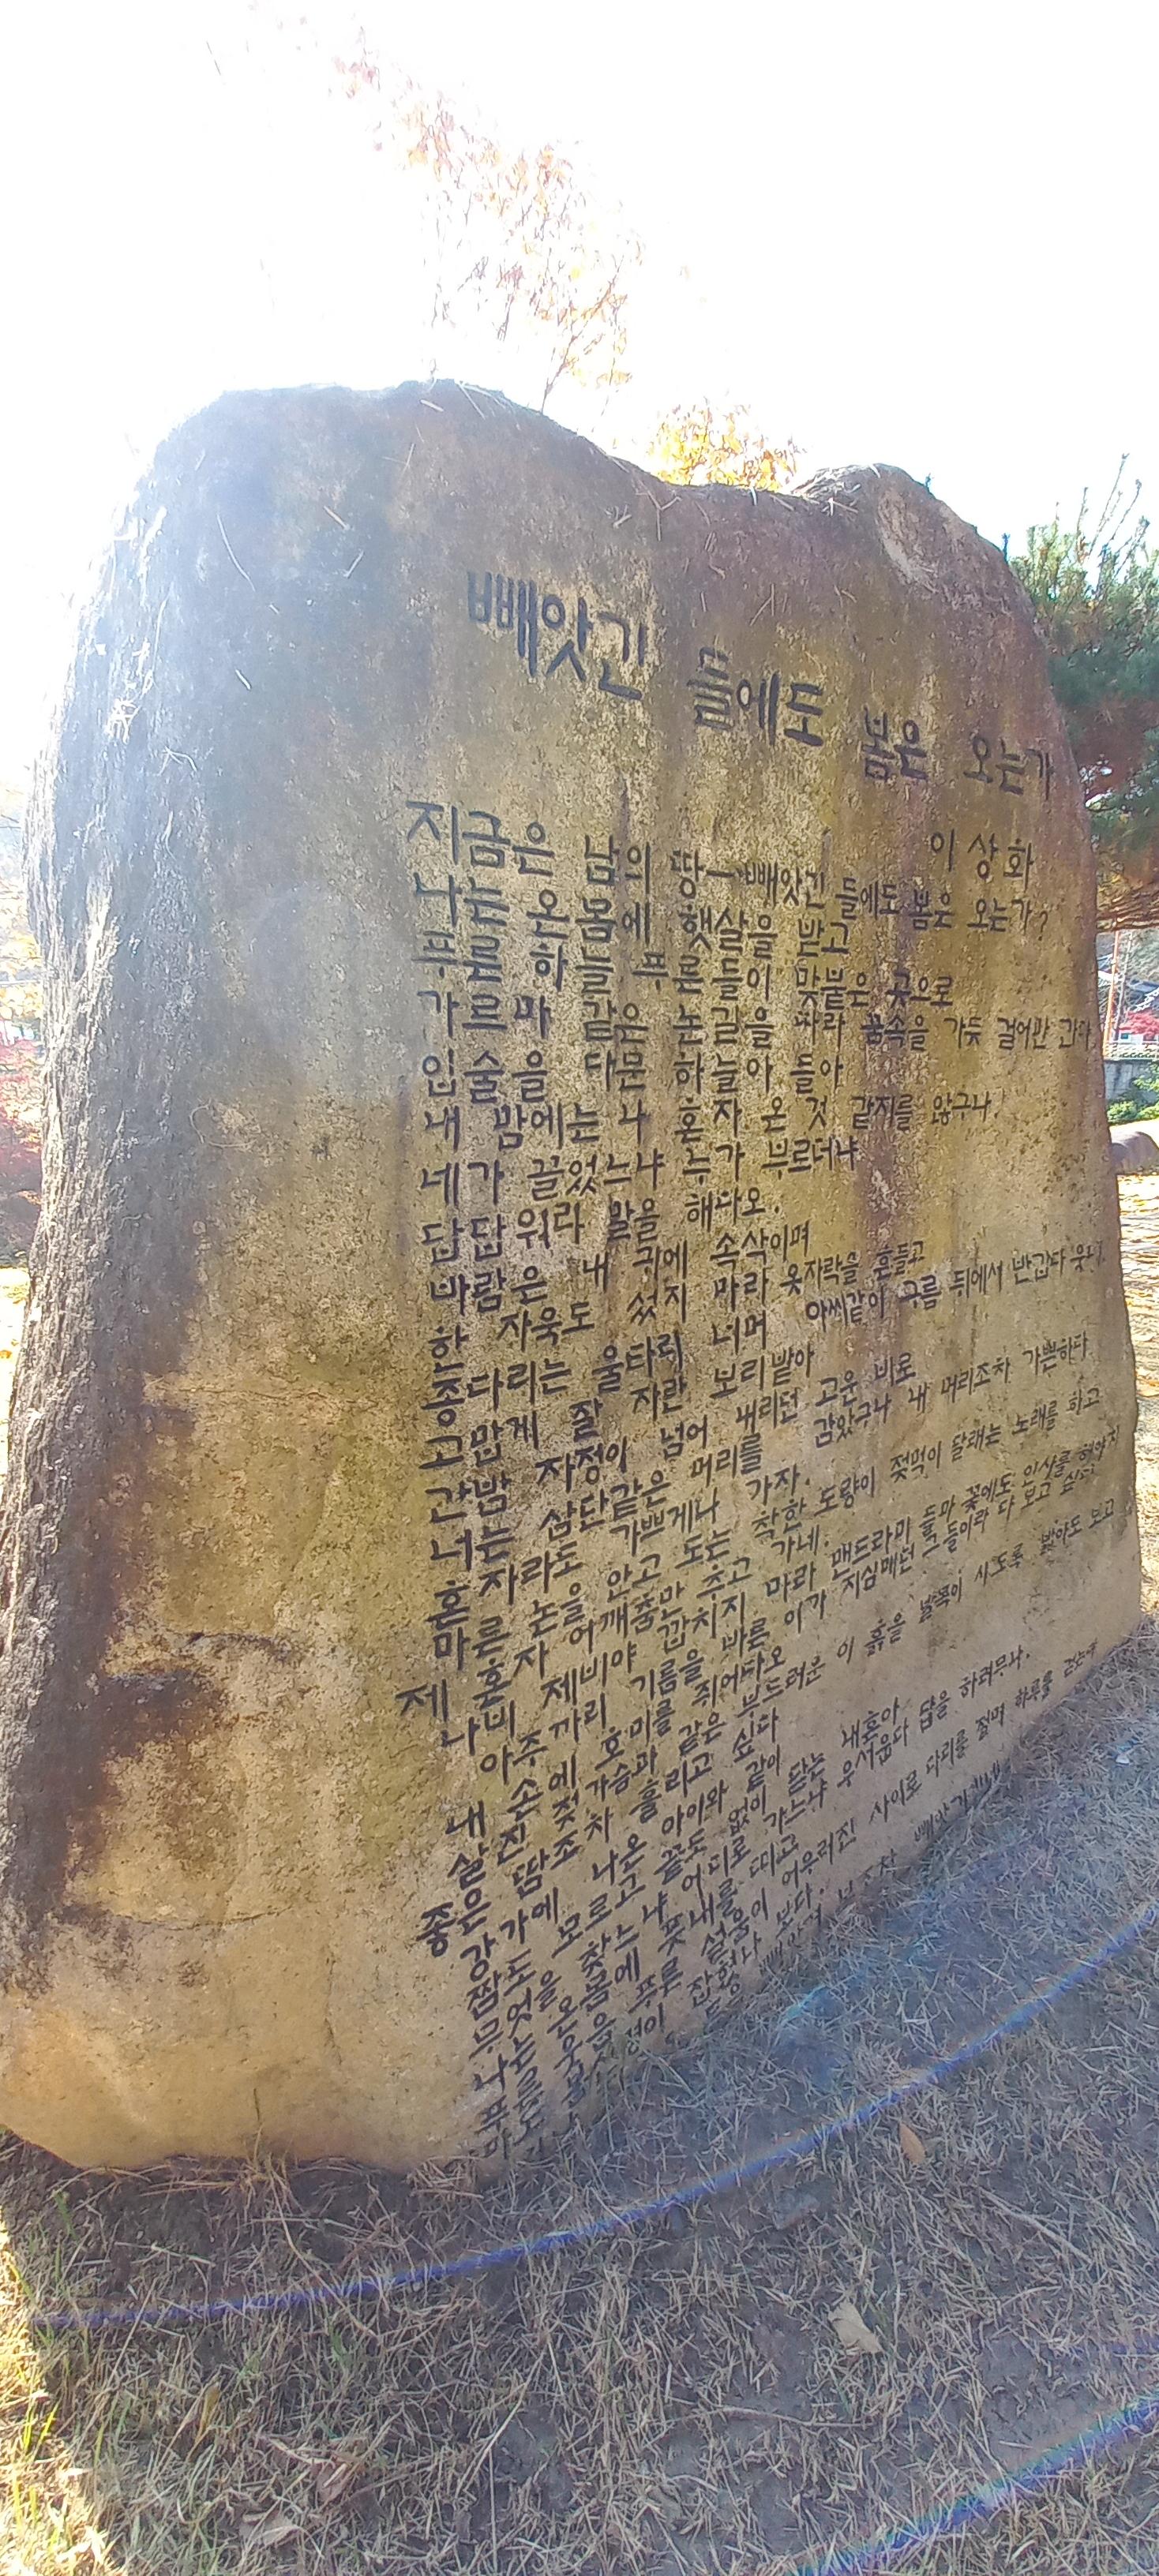 빼앗긴 들에도 봄은 오는가
이상화
지금은 남의 땅— 빼앗긴 들에도 봄은 오는가?
나는 온 몸에 햇살을 받고
푸른 하늘 푸른 들이 맞붙은 곳으로
가르마 같은 논길을 따라 꿈속을 가듯 걸어만 간다
입술을 다문 하늘아 들아
내 맘에는 나 혼자 온 것 같지를 않구나!
네가 끌었느냐 누가 부르더냐
답답워라 말을 해다오.
바람은 내 귀에 속삭이며
한 자욱도 섰지 마라 옷자락을 흔들고
종다리는 울타리 너머 아씨같이 구름 뒤에서 반갑다 웃네
고맙게 잘 자란 보리밭아
간밤 자정이 넘어 내리던 고운 비로
너는 삼단같은 머리를 감았구나 내 머리조차 가쁜하다
혼자라도 가쁘게나 가자.
마른 논을 안고 도는 착한 도랑이 젖먹이 달래는 노래를 하고
제 혼자 어깨춤만 추고 가네.
나비 제비야 깝치지 마라 맨드라미 들마 꽃에도 인사를 해야지
아주까리 기름을 바른 이가 지심매던 그들이라 다 보고 싶다
내 손에 호미를 쥐어다오
살진 젖가슴과 같은 부드러운 이 흙을 발목이 시도록 밟아도 보고
좋은 땀조차 흘리고 싶다
강가에 나온 아이와 같이
짬도 모르고 끝도 없이 닫는 내혼아
무엇을 찾느냐 어디로 가느냐 우서웁다 답을 하려무나.
나는 온몸에 풋내를 띠고
푸른 설움이 어우러진 사이로 다리를 절며 하루를 걷는다